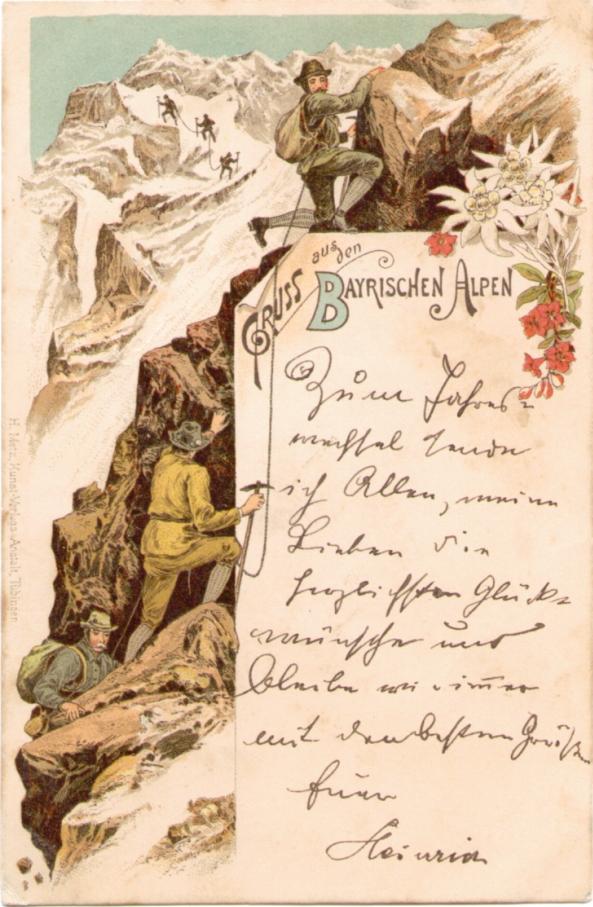 Gruss aus den
Bayrischen Alpen
Zum Jahres=
wechsel sende
ich Allen, meine
Lieben die
herzlichsten Glück=
wünsche und
bleibe wie immer
mit den besten Grüßen
Euer
Heinrich
H. Merz, Kunst-Verlags-Anstalt, Tübingen.